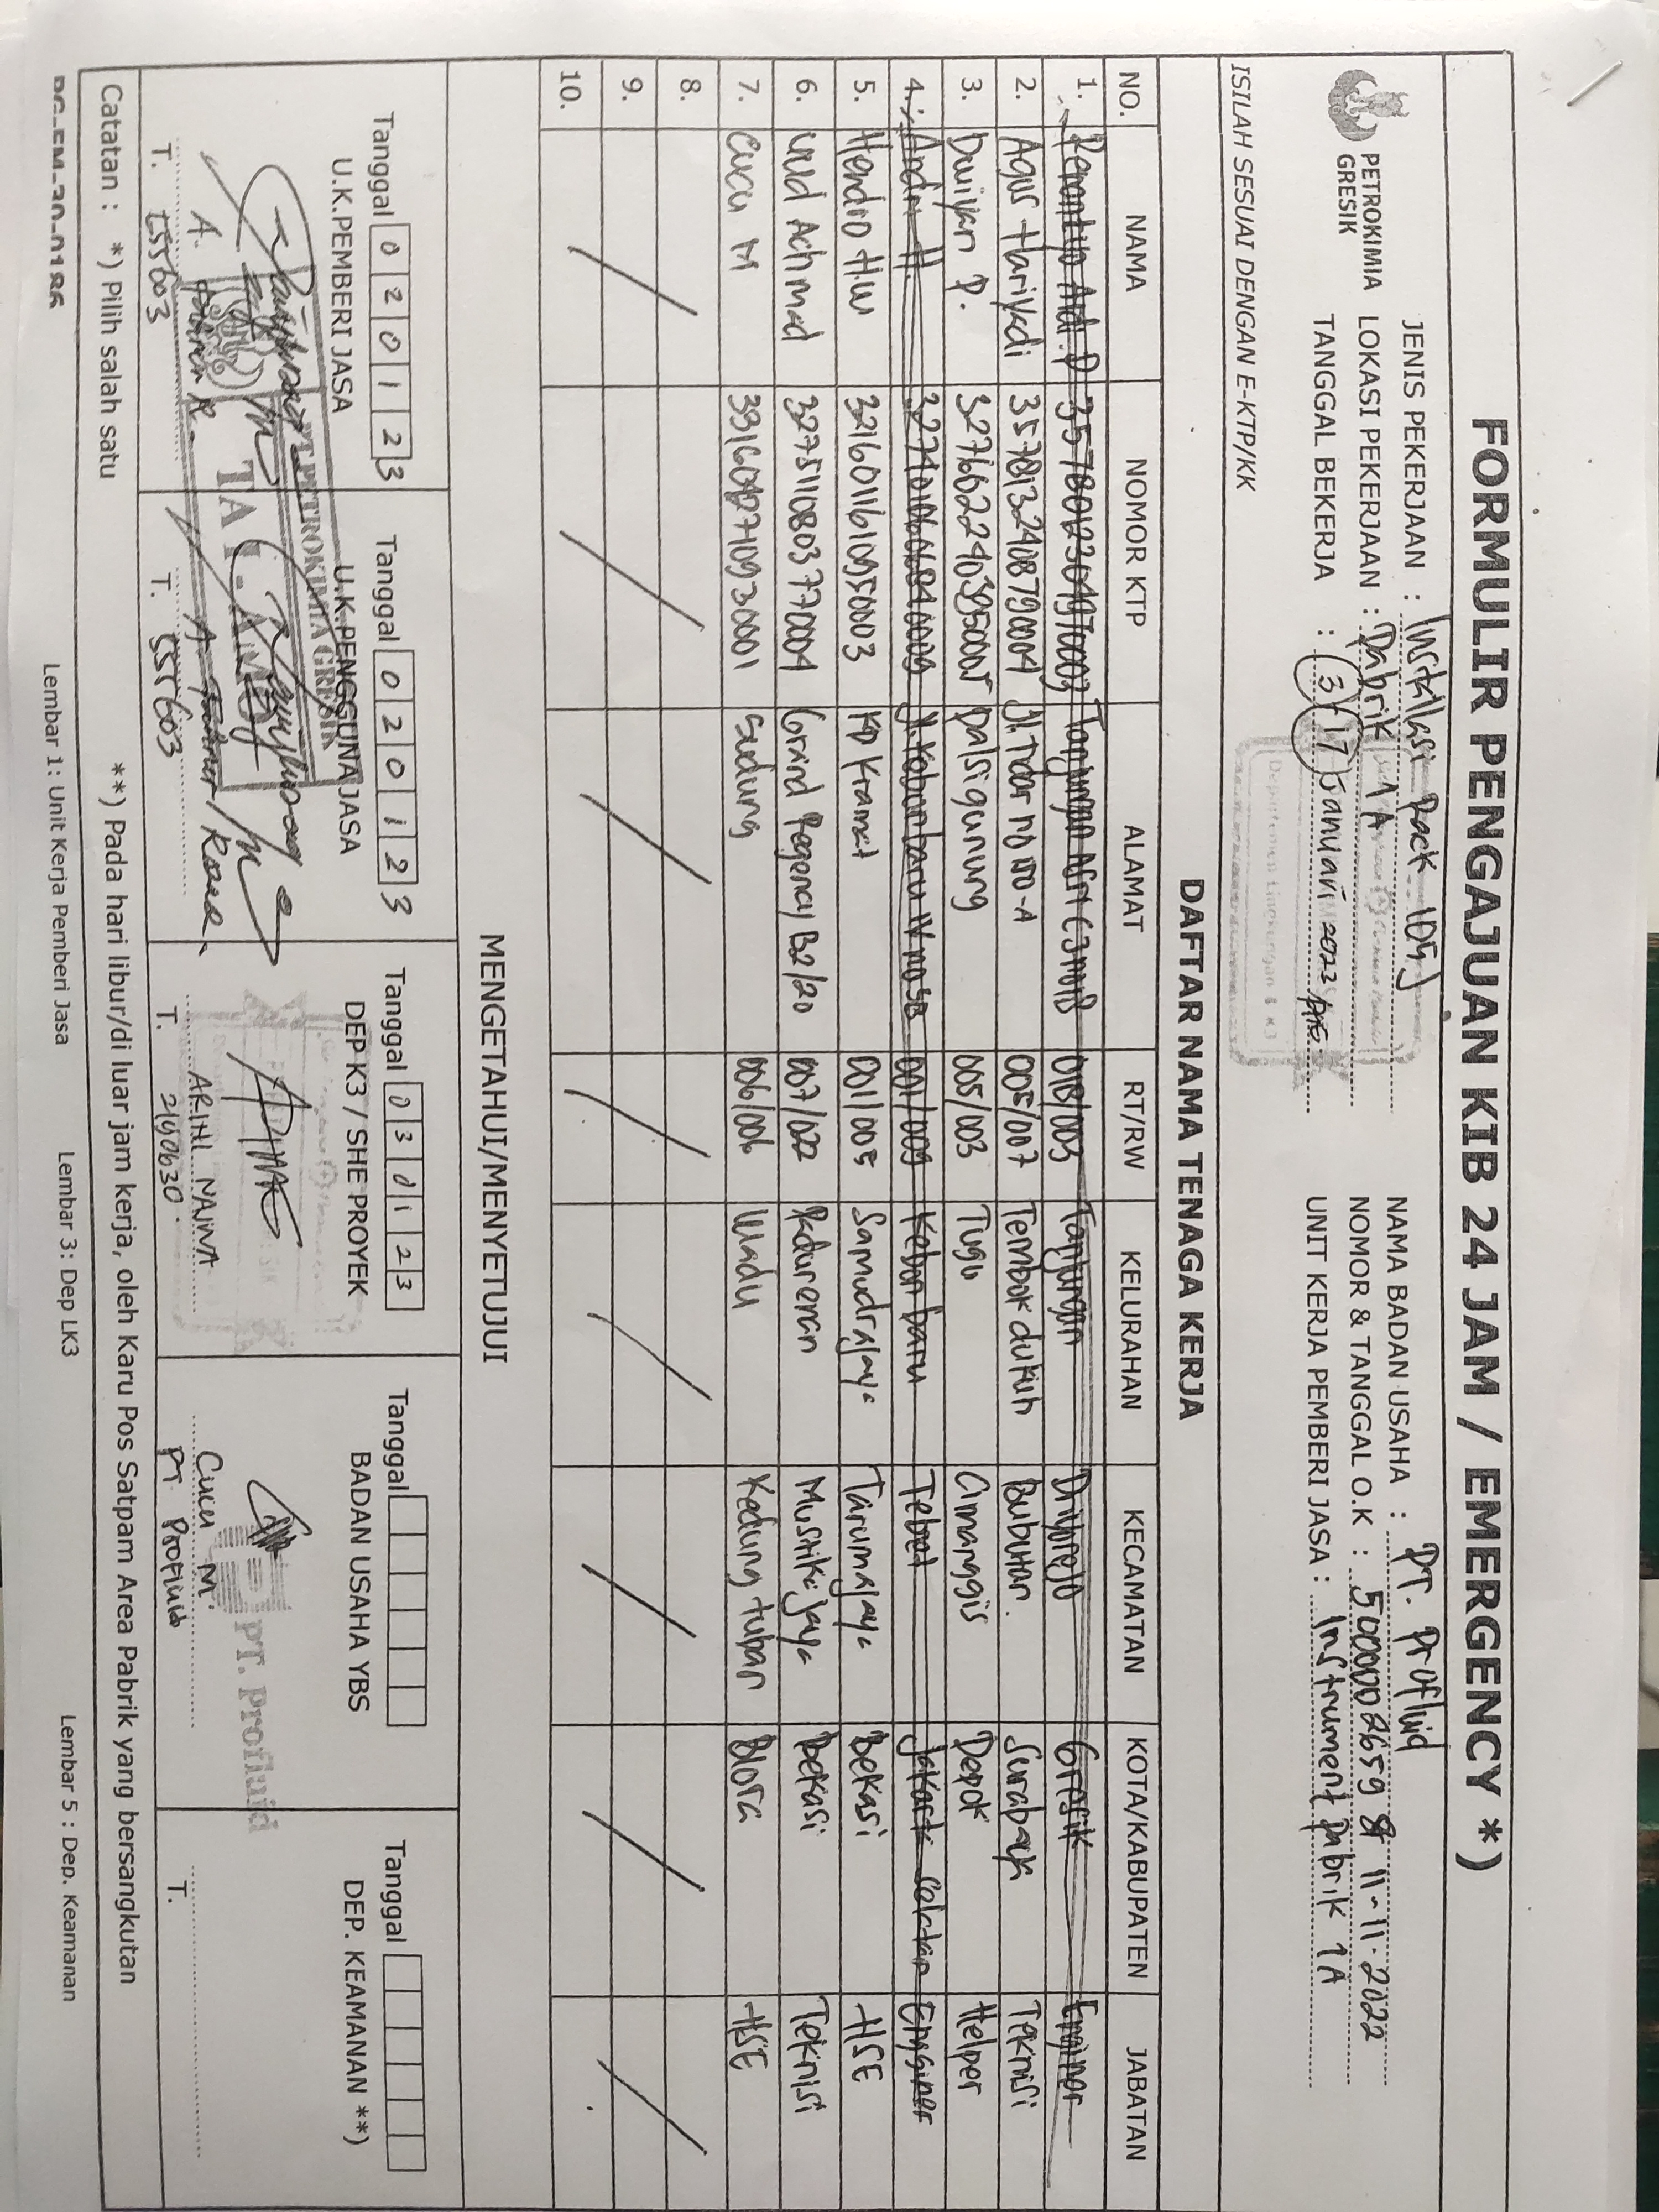 FORMULIR PENGAJUAN KIB 24 JAM / EMERGENCY *)
PETROKIMIA GRESIK
JENIS PEKERJAAN : Installasi pack 109
LOKASI PEKERJAAN : Pabrik 1A
TANGGAL BEKERJA : 3/17 Januari 2023
NAMA BADAN USAHA : PT. Profluid
NOMOR & TANGGAL O.K : 5000002659 & 11-11-2022
UNIT KERJA PEMBERI JASA : Instrument pabrik 1A
ISILAH SESUAI DENGAN E-KTP/KK
DAFTAR NAMA TENAGA KERJA
NO. NAMA NOMOR KTP ALAMAT RT/RW KELURAHAN KECAMATAN KOTA/KABUPATEN JABATAN
1. Tanjungan 018/003 Tanjungan Driyorejo Gresik Enginer
2. Agus Hariyadi 3578132408790004 Jl. 005/007 Tembok dukuh Bubutan. Surabaya Teknisi
3. Dwiyan P. palsigunung 005/003 Tugu Cimanggis Depok Helper
4. Andri H. Jl. Kebon baru IV 001/009 Kebon baru Tebet Jakarta Selatan Enginer
5. Hendro HW 3216011610950003 KP Kramat 001/005 Samudrajaya Tarumajaya Bekasi HSE
6. Urud Achmad 3275110803770004 Grand Regency B2/20 007/022 Padurenan Mustikajaya Bekasi Teknisi
7. Cucu M Sudung 006/006 Wadu Kedung tuban Blora HSE
8.
9.
10.
MENGETAHUI/MENYETUJUI
Tanggal 020123
U.K.PEMBERI JASA
T. 555603
Tanggal 020123
U.K.PENGGUNA JASA
T. 555603
PT PETROKIMIA GRESIK
Tanggal 030123
DEP K3 / SHE PROYEK
ARINI NAJWA
T. 2190630
Tanggal
BADAN USAHA YBS
PT. Profluid
Cucu M.
PT. Profluid
Tanggal
DEP. KEAMANAN **)
T.
Catatan : *) Pilih salah satu
**) Pada hari libur/di luar jam kerja, oleh Karu Pos Satpam Area Pabrik yang bersangkutan
Lembar 1: Unit Kerja Pemberi Jasa
Lembar 3: Dep LK3
Lembar 5 : Dep. Keamanan